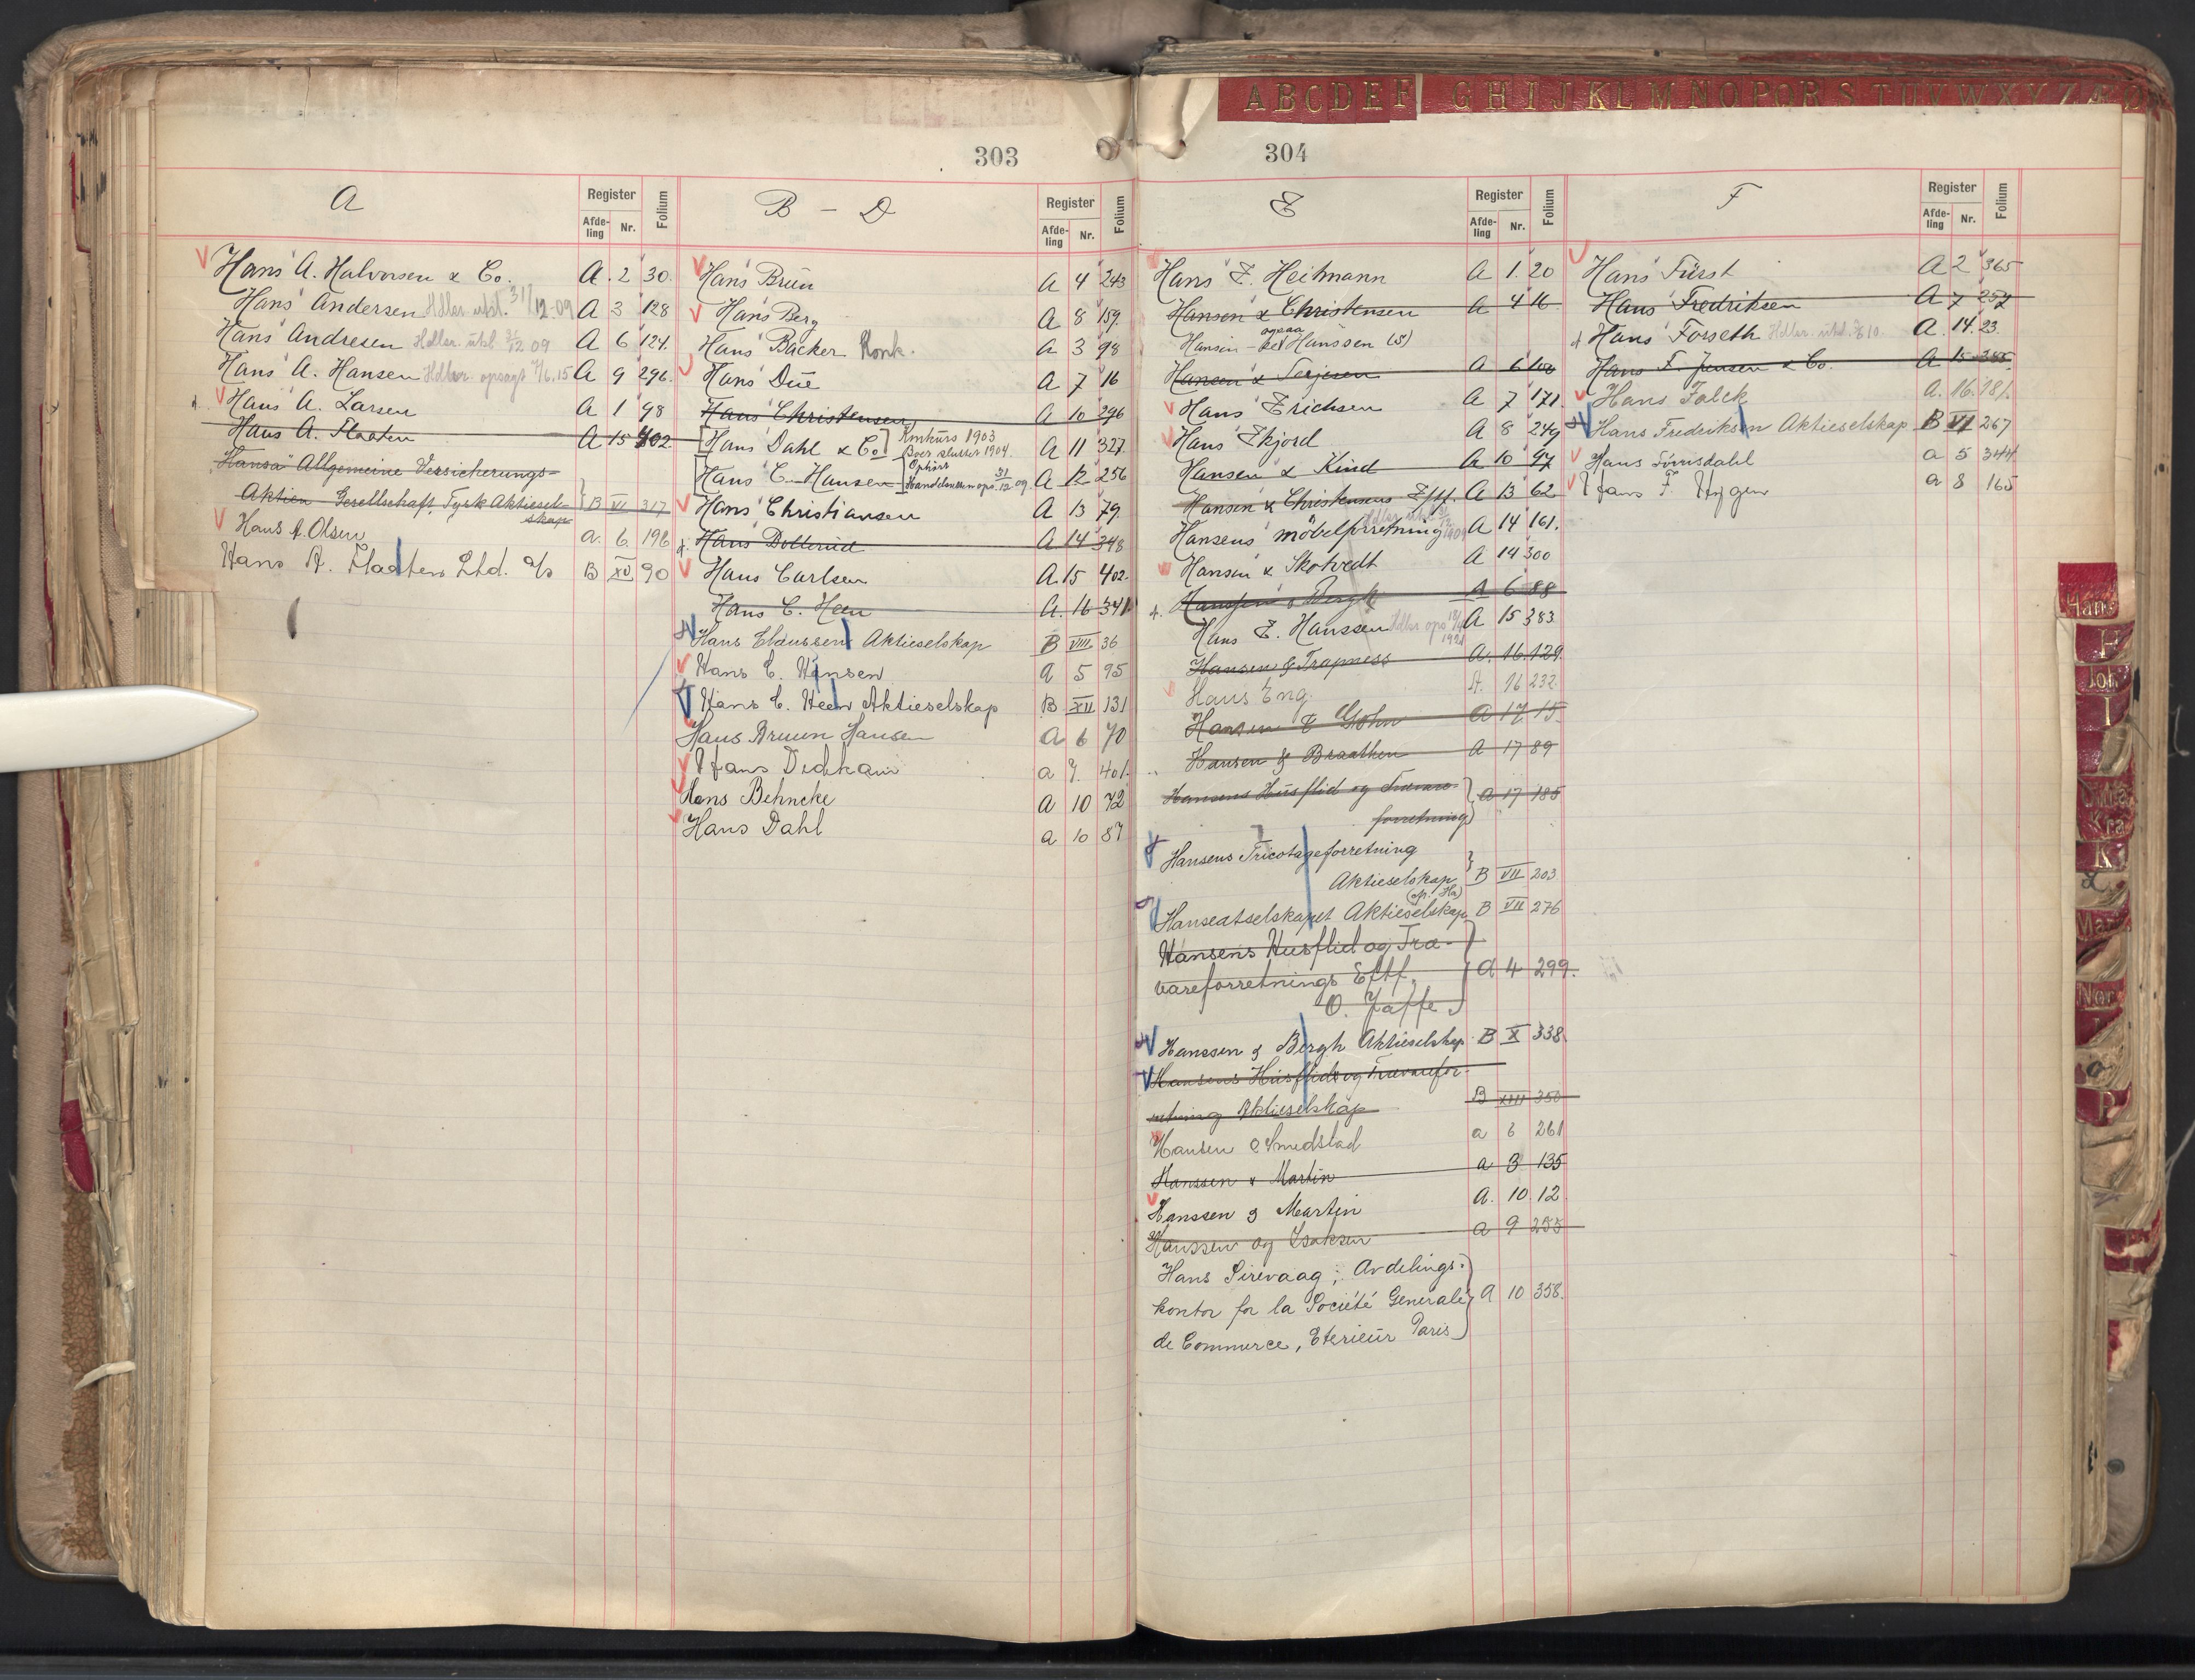 303
A
Register
Afde-
ling
Nr.
Folium
Hans A. Halvorsen & Co. A. 2 30.
Hans Andersen Hdler utsl. 31/12.09 A 3 128
Hans Andresen Hdler. utsl. 31/12 09 A 6 124.
Hans A. Hansen Hdler. opsagt A 9 296.
Hans A. Larsen A 1 98
Hans A. Flaaten A 15 402
"Hansa" Allgemeine Versicherungs-
Aktien-Gesellschaft, Tysk Aktiesel-
skap B VI 317
Hans A. Olsen a. 6. 196
Hans A. Flaaten Ltd. A/s B XV 90
B - D
Register
Afde-
ling
Nr.
Folium
Hans Brun A 4 243
Hans Berg A 8 159.
Hans Backer Konk. A 3 98
Hans Due A 7 16
Hans Christensen A 10 296
[Hans Dahl & Co] Konkurs 1903 A 11 327.
Boet sluttet 1904.
Ophørt
Hans C. Hansen 31/12 09. A 12 256
Hans Christiansen A 13 79
Hans Dollerud A 14 348
Hans Carlsen A. 15 402.
Hans C. Heen A. 16 341
Hans Claussen Aktieselskap B VIII 36
Hans C. Hansen a 5 95
Hans C. Heen Aktieselskap B XII 131
Hans Bruun Hansen a 6 70
Hans Dedekam a 7. 401.
Hans Behncke a 10 72
Hans Dahl a 10 87
304
ABCDEF GHIJKLMNOPQRSTUVWXYZÆØ
E
Register
Afde-
ling
Nr.
Folium
Hans E. Heitmann A 1. 20
Hansen & Christensen A 4 16.
ogsaa
Hansen - Hanssen (s)
Hansen & Terjesen A 6
Hans Erichsen A 7 171.
Hans Ekjord A 8 249
Hansen & Kind A 10 97
Hansen & Christensens Eftf. A 13 62
Hansens møbelforretning A 14 161.
Hansen & Skotvedt A 14 300
Hanssen & Bergh A 6 88
Hans E. Hanssen Hdler ops. 1921 A 15 383
Hansen & Trapness A. 16. 129.
Hans Eng. A. 16 232.
Hansen & Gohn A 17 15.
Hansen & Braathen A 17 89
Hansens Husflid og Trævare-
forretning A 17 185
Hansens Tricotageforretning
Aktieselskap B VII 203
Hanseatselskapet Aktieselskap B VII 276
Hansens Husflid og Træ-
vareforretnings Eftf.
O. Jaffe a 4 299.
Hanssen & Bergh Aktieselskap B X 338
Hansens Husflids og Trævarefor-
retning Aktieselskap B XIII 350
Hansen & Smedstad a 6 261
Hanssen & Martin a 3 135
Hanssen & Martin A. 10. 12
Hanssen og Isaksen a 9 255
Hans Sirevaag; Avdelings-
kontor for la Société Generale A 10 358.
de Commerce, Eterieur Paris
F
Register
Afde-
ling
Nr.
Folium
Hans Fürst A 2 365
Hans Fredriksen A 7 257
Hans Forseth Hdler. utsl. A. 14. 23.
Hans F. Jensen & Co. A 15 385.
Hans Falck A. 16. 181.
Hans Fredriksen Aktieselskap B VI 267
Hans Førrisdahl a 5 344
Hans F. Hygen a 8 165
Hans
H
Joh
I
Kra
K
L
Mar
Nor
O
P